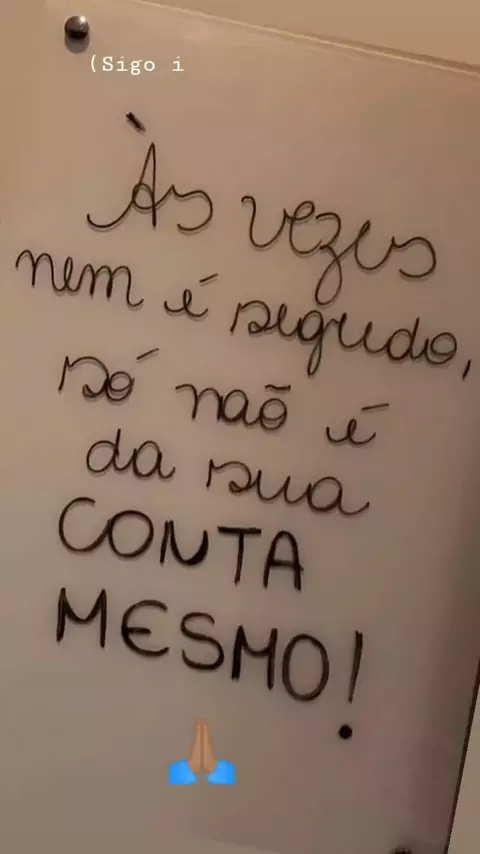 (Sigo i
Às vezes
nem é segudo,
só naõ é
da sua
CONTA
MESMO!